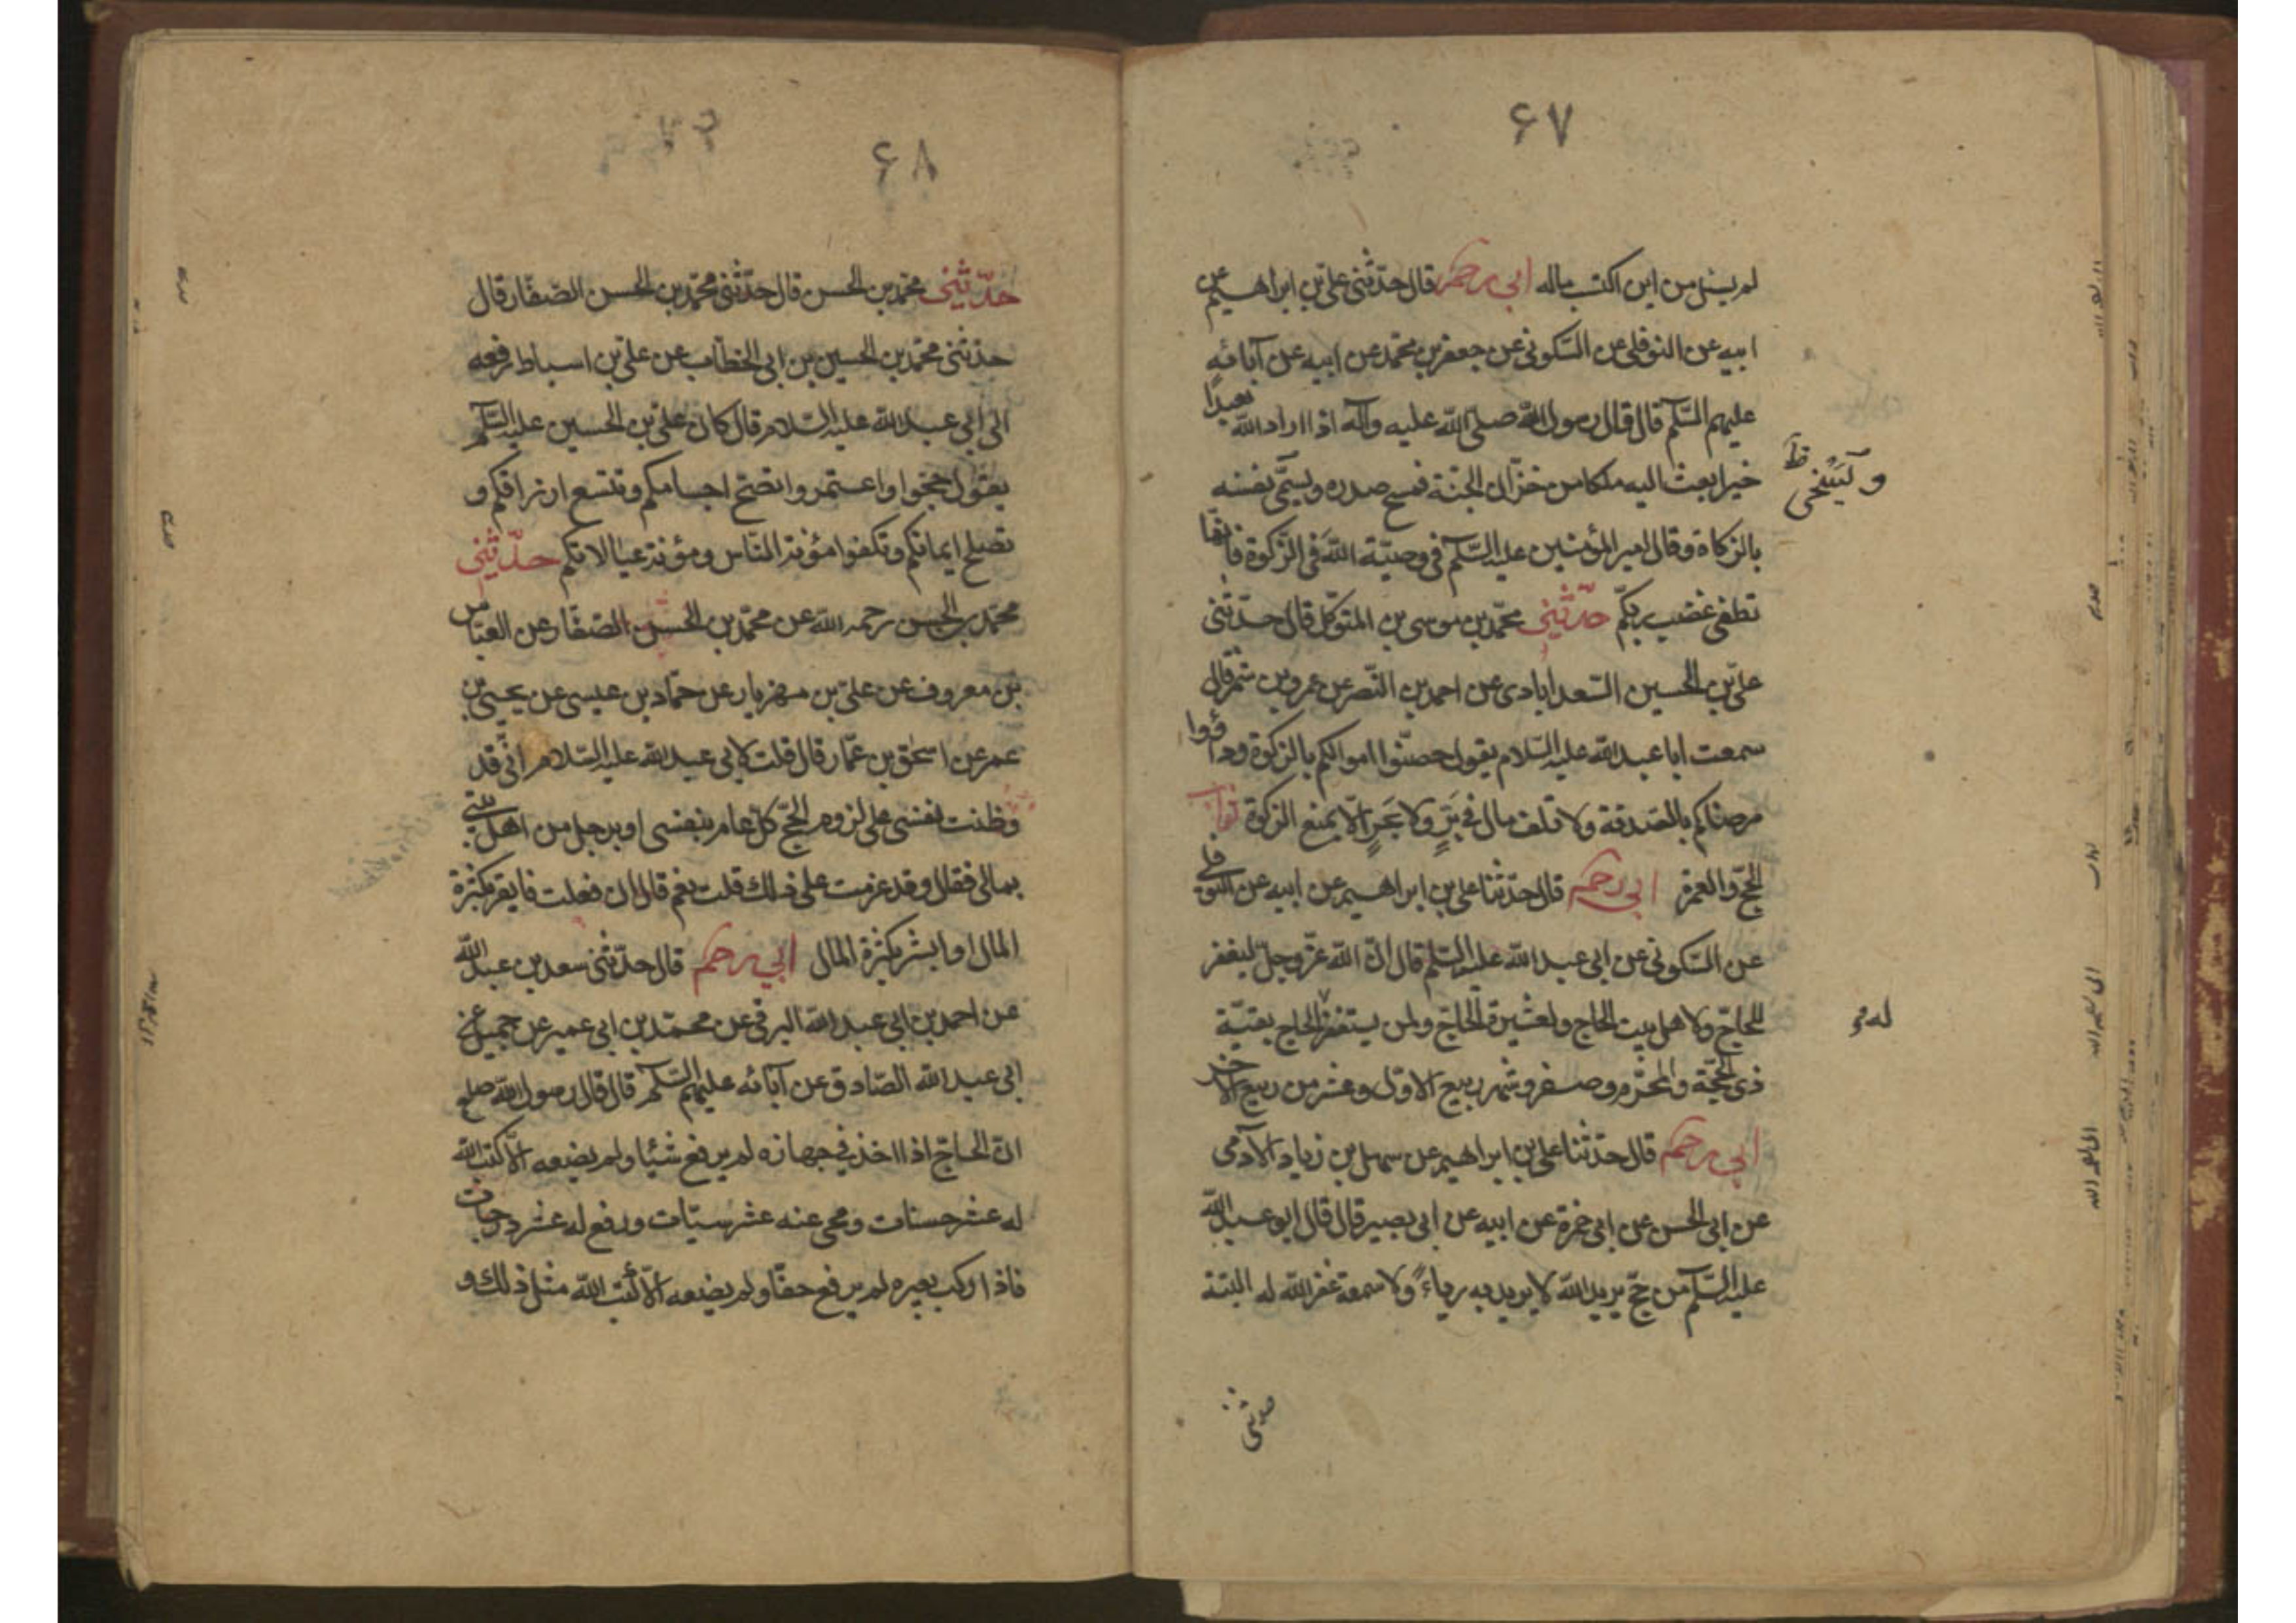 ۶۷
لم يسئل من اين اكتسب ماله ابى رحمه قال حدّثنى علىّ بن ابراهيم عن
ابيه عن النوفلى عن السّكونى عن جعفر بن محمّد عن ابيه عن آبائه
عليهم السّلم قال قال رسول اللّه صلى اللّه عليه وآله اذا اراد اللّه بعبدٍ
خيرا بعث اليه ملكا من خزّان الجنّة فمسح صدره ويسمّى نفسه
وليسخى ظ
بالزكاة وقال امير المؤمنين عليه السّلم فى وصيّته اللّه فى الزّكوة فانّها
تطفى غضب ربكم حدّثنى محمّد بن موسى بن المتوكّل قال حدّثنى
علىّ بن الحسين السّعدابادى عن احمد بن النّضر عن عمرو بن شمر قال
سمعت ابا عبد اللّه عليه السّلام يقول حصّنوا اموالكم بالزكوة وداووا
مرضاكم بالصّدقة ولا تلف مال فى بَرٍّ ولا بَحرٍ الّا بمنع الزكوة ثواب
الحجّ والعمرة ابى رحمه قال حدّثنا على بن ابراهيم عن ابيه عن النوفلى
عن السّكونى عن ابى عبد اللّه عليه السّلم قال انّ اللّه عزّ وجلّ ليغفر
للحاجّ ولاهل بيت الحاج ولعشيرة الحاجّ ولمن يستغفر الحاج بقيّة
له
ذى الحجّة والمحرّم وصفر وشهر ربيع الاوّل وعشر من ربيع الاخر
ابى رحمه قال حدّثنا على بن ابراهيم عن سهل بن زياد الآدمى
عن ابى الحسن عن ابى حمزة عن ابيه عن ابى بصير قال قال ابو عبد اللّه
عليه السّلم من حجّ يريد اللّه لا يريد به رياءً ولا سمعة غفر اللّه له البتّة
حدثنى
۶۸
حدّثنى محمّد بن الحسن قال حدّثنى محمّد بن الحسن الصّفّار قال
حدّثنى محمّد بن الحسين بن ابى الخطّاب عن علىّ بن اسباط رفعه
الى ابى عبد اللّه عليه السّلام قال كان علىّ بن الحسين عليه السّلم
يقول حجّوا واعتمروا تصّح اجسامكم وتتسع ارزاقكم و
تصلح ايمانكم وتكفوا مؤنة النّاس ومؤنة عيالاتكم حدّثنى
محمّد بن الحسن رحمه اللّه عن محمّد بن الحسن الصّفّار عن العبّاس
بن معروف عن علىّ بن مهزيار عن حمّاد بن عيسى عن يحيى بن
عمر عن اسحق بن عمّار قال قلت لابى عبد اللّه عليه السّلام انّى قد
وظنت نفسى على لزوم الحجّ كلّ عام بنفسى او برجل من اهل بيتى
بمالى فقال وقد عزمت على ذلك قلت نعم قال ان فعلت فايقن بكثرة
المال او ابشر بكثرة المال ابى رحمه قال حدّثنى سعد بن عبد اللّه
عن احمد بن ابى عبد اللّه البرقى عن محمّد بن ابى عمير عن جميل عن
ابى عبد اللّه الصّادق عن آبائه عليهم السّلم قال قال رسول اللّه صلع
انّ الحاجّ اذا اخذ فى جهازه لم يرفع شيئا ولم يضعه الّا كتب اللّه
له عشر حسنات ومحى عنه عشر سيّات ورفع له عشر درجات
فاذا ركب بعيره لم يرفع خفّا ولم يضعه الّا كتب اللّه مثل ذلك و